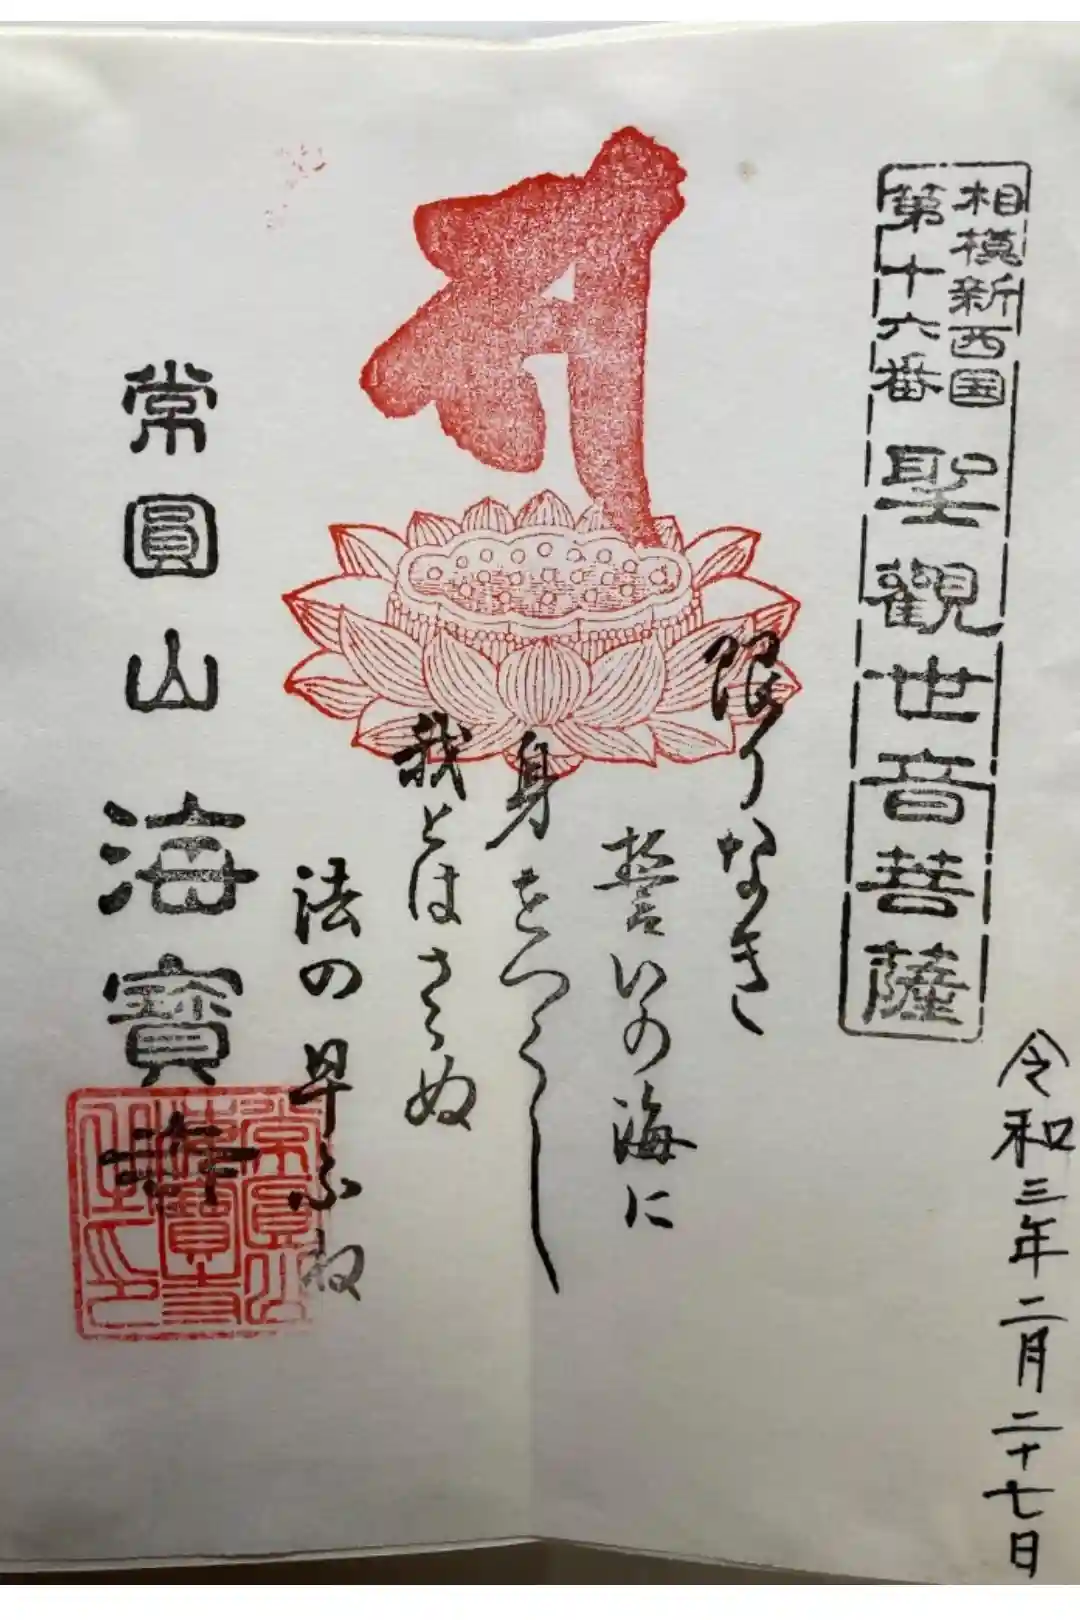 相模新西国
第十六番
聖觀世音菩薩
令和三年二月二十七日
限りなき
誓いの海に
身をつくし
我とはさらぬ
法の早ふね
常圓山 海寶寺
常圓山
海寶寺
之印